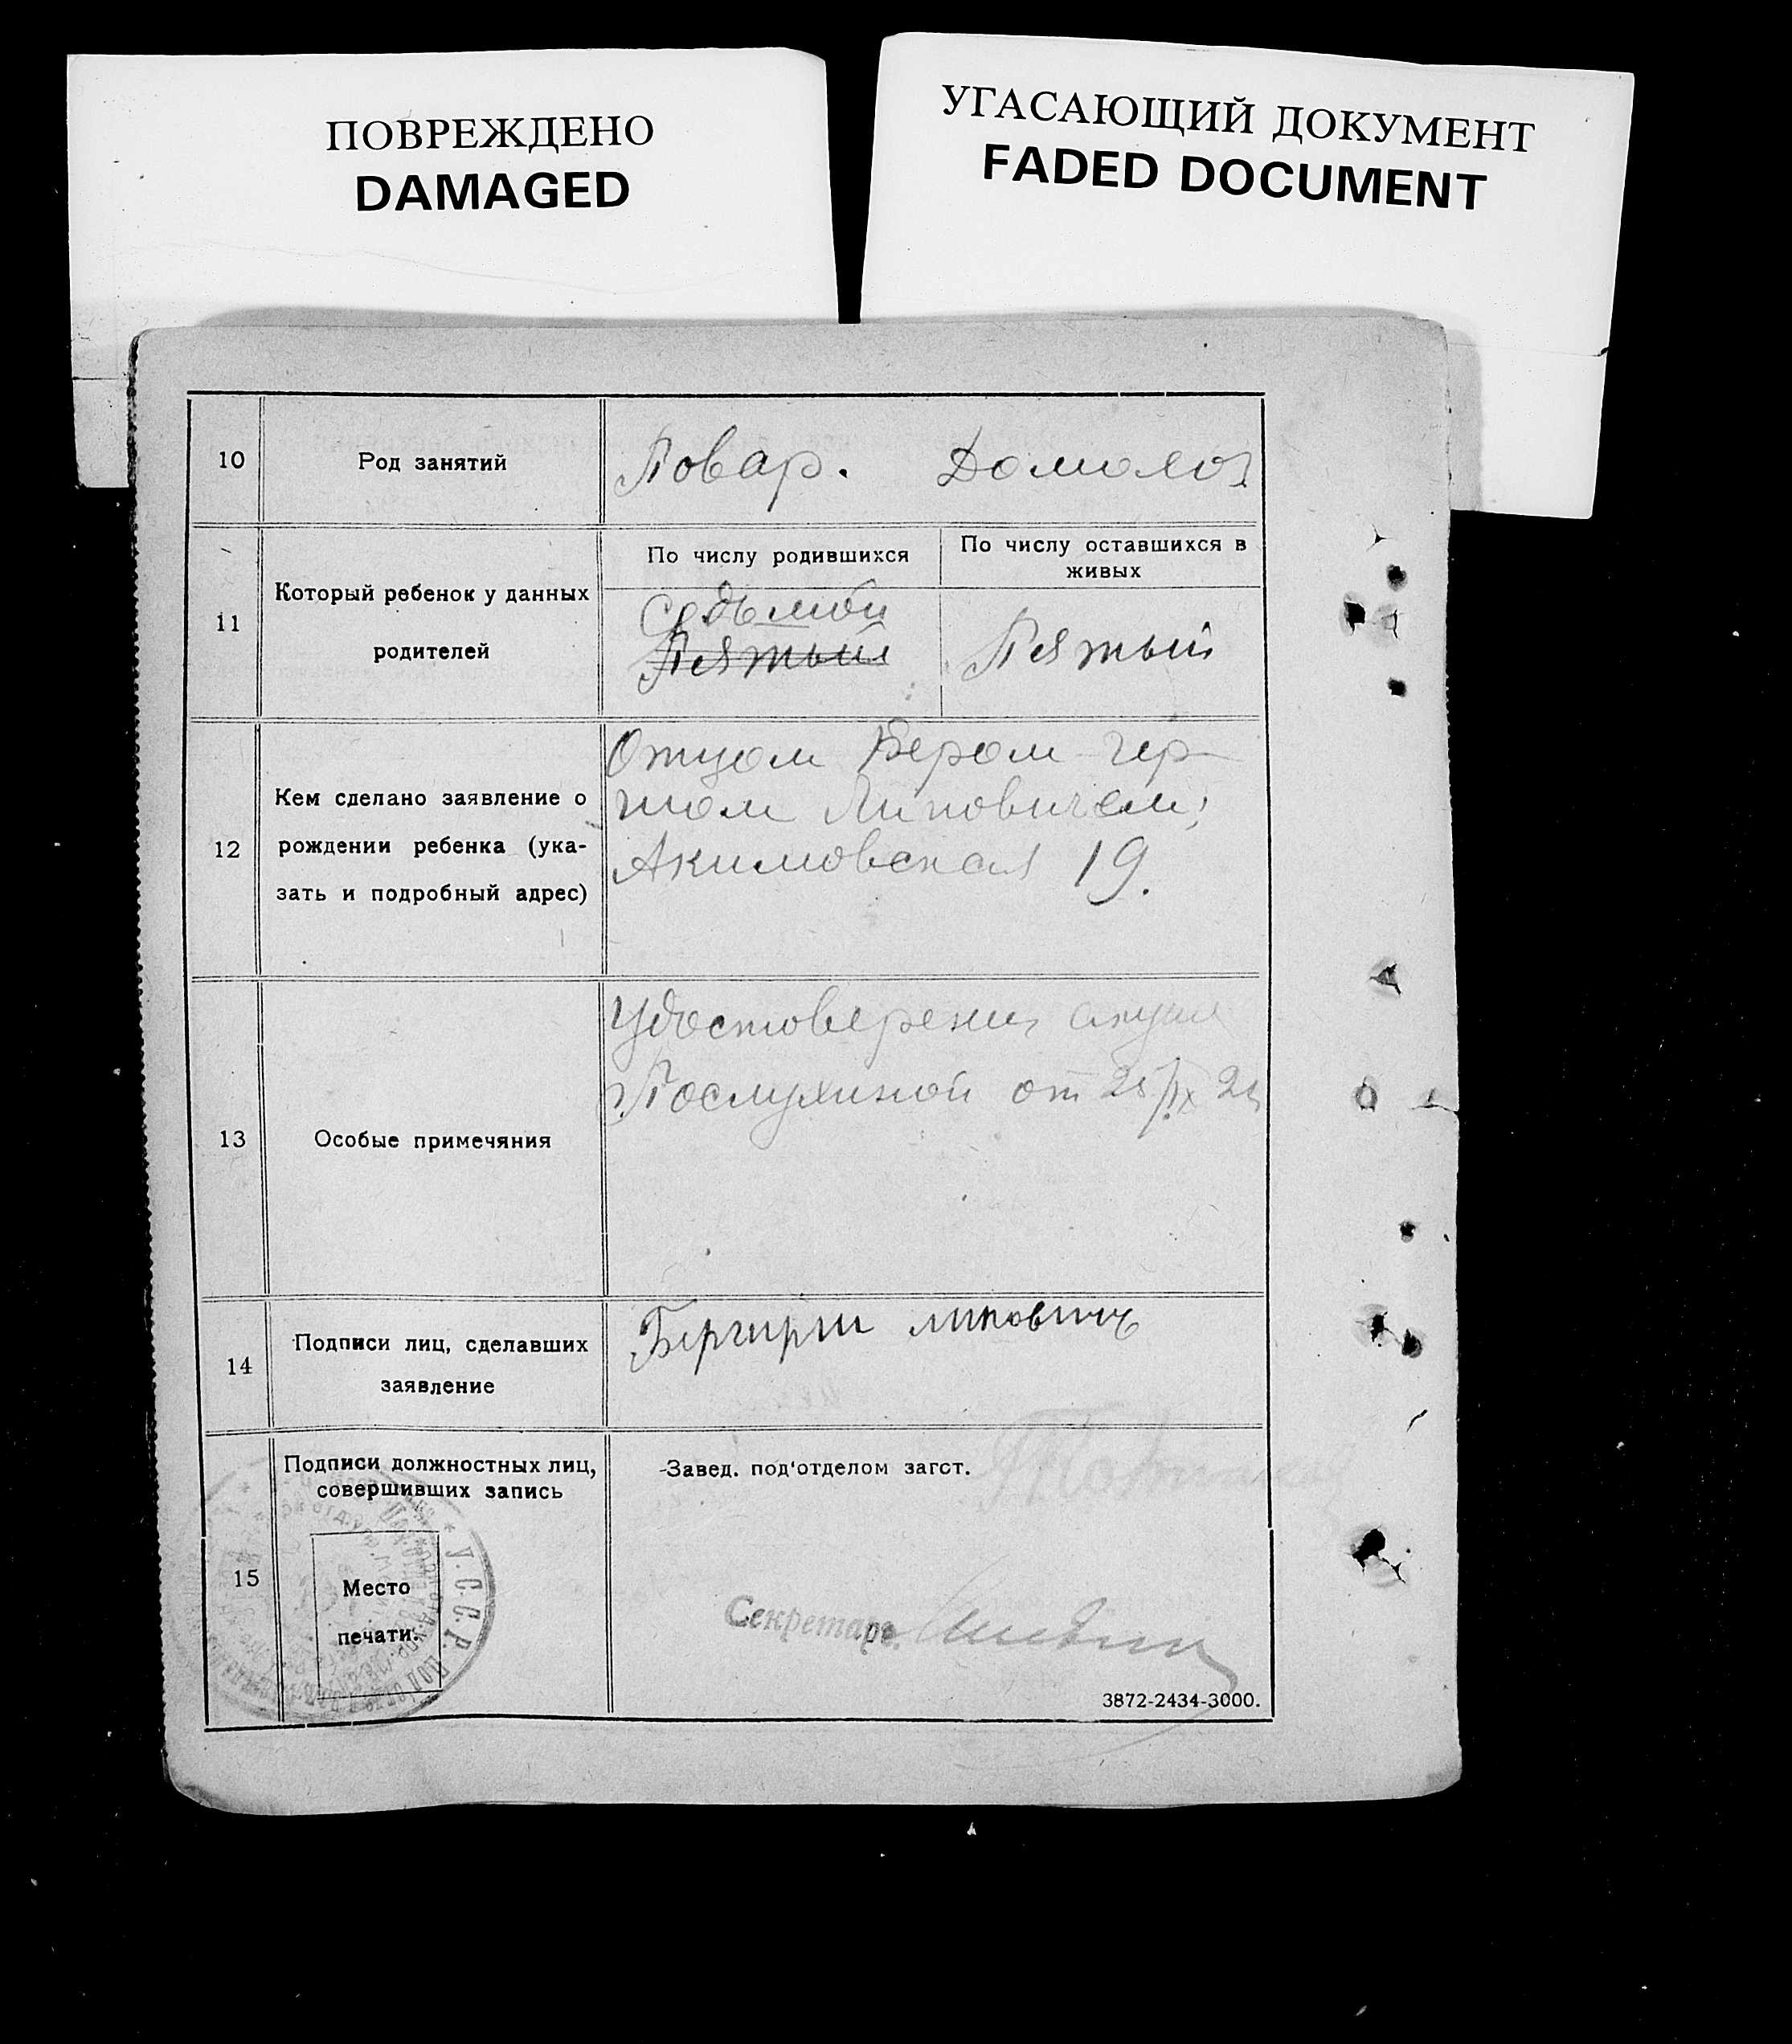 ПОВРЕЖДЕНО
DAMAGED
УГАСАЮЩИЙ ДОКУМЕНТ
FADED DOCUMENT
10
Род занятий
Повар. Домохоз
11
Который ребенок у данных
родителей
По числу родившихся
Седьмой
Пятый
По числу оставшихся в
живых
Пятый
12
Кем сделано заявление о
рождении ребенка (ука-
зать и подробный адрес)
Отцом Бером-Гер-
шом Липовичем,
Акимовская 19.
13
Особые примечяния
Удостоверение акуш
Послухиной от 25/IX
14
Подписи лиц, сделавших
заявление
Бергирш Липович
15
Подписи должностных лиц,
совершивших запись
Место
печати.
У.С.С.Р.
Завед. под'отделом загст.
Секретарь.
3872-2434-3000.